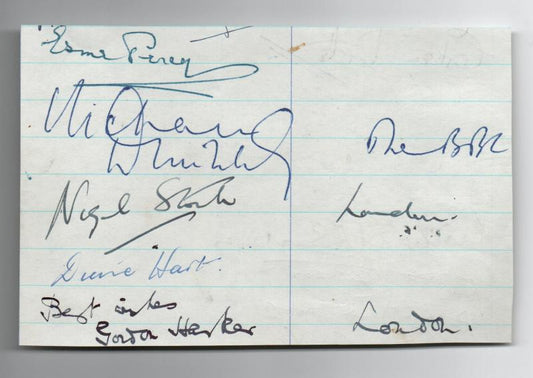 Esme Percy
Michael
The BBC
Nigel Stock
London.
Diane Hart.
Best wishes
Gordon Harker
London.